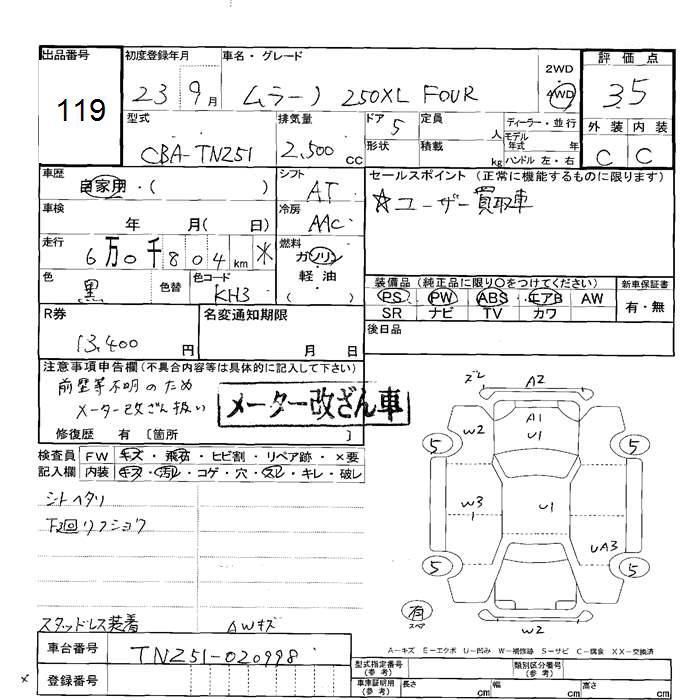 出品番号
119
初度登録年月
23 9月
車名・グレード
ムラーノ 250XL FOUR
2WD
4WD
評価点
3.5
型式
CBA-TNZ51
排気量
2,500 cc
ドア 5
定員 人
形状
積載 kg
ディーラー・並行
モデル年式 年
ハンドル 左・右
外装 内装
C C
車歴
自家用・( )
シフト
AT
セールスポイント (正常に機能するものに限ります)
☆ユーザー買取車
車検
年 月( 日)
冷房
AAC
走行
6万0千804km ✳
燃料
ガソリン
軽・油
( )
色
黒
色替
色コード
KH3
装備品(純正品に限り○をつけてください)
PS PW ABS エアB AW
SR ナビ TV カワ
新車保証書
有・無
R券
13,400円
名変通知期限
月 日
後日品
注意事項申告欄(不具合内容等は具体的に記入して下さい)
前歴等不明のため
メーター改ざん扱い
メーター改ざん車
修復歴 有 〔箇所 〕
検査員 FW キズ・飛石・ヒビ割・リペア跡・×要
記入欄 内装 キズ・汚レ・コゲ・穴・スレ・キレ・破レ
シートヘタリ
下廻リフショク
スタッドレス装着
AWキズ
車台番号
TNZ51-020998
登録番号
×
ズレ
A2
A1
U1
W2
5
5
W3
U1
UA3
5
5
有
スペア
W2
A-キズ E-エクボ U-凹み W-補修跡 S-サビ C-腐食 XX-交換済
型式指定番号
(参考)
類別区分番号
(参考)
車庫証明用
(参考)
長さ cm
幅 cm
高さ cm